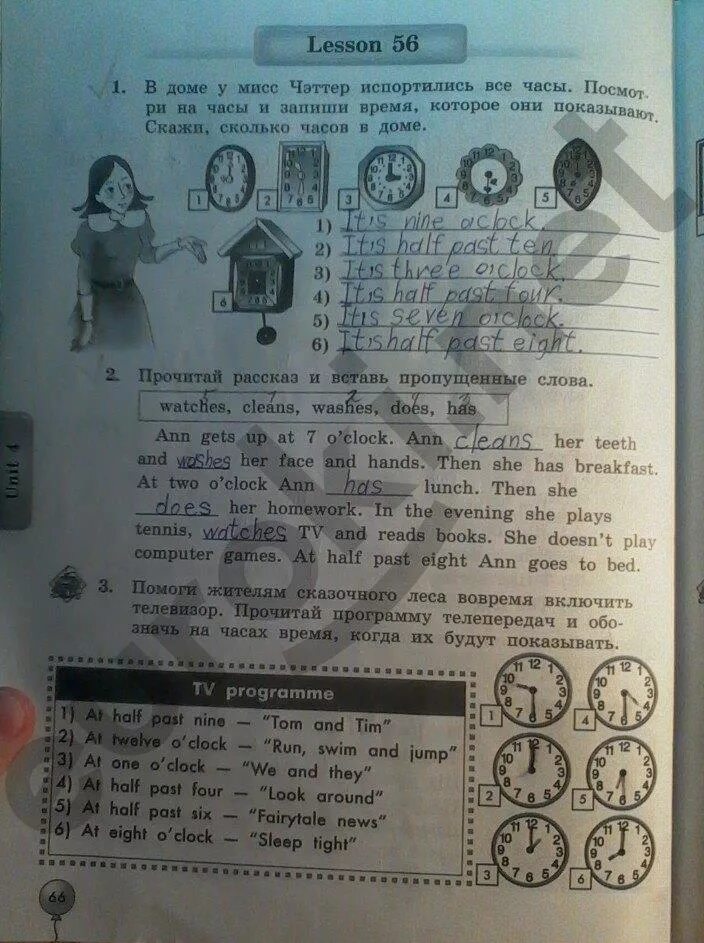 Lesson 56
1. В доме у мисс Чэттер испортились все часы. Посмот-
ри на часы и запиши время, которое они показывают.
Скажи, сколько часов в доме.
1
2
3
4
5
6
1) It is nine o'clock.
2) It is half past ten
3) It is three o'clock.
4) It is half past four.
5) It is seven o'clock.
6) It is half past eight.
2. Прочитай рассказ и вставь пропущенные слова.
watches, cleans, washes, does, has
Ann gets up at 7 o'clock. Ann cleans her teeth
and washes her face and hands. Then she has breakfast.
At two o'clock Ann has lunch. Then she
does her homework. In the evening she plays
tennis, watches TV and reads books. She doesn't play
computer games. At half past eight Ann goes to bed.
Unit 4
3. Помоги жителям сказочного леса вовремя включить
телевизор. Прочитай программу телепередач и обо-
значь на часах время, когда их будут показывать.
TV programme
1) At half past nine — "Tom and Tim"
2) At twelve o'clock — "Run, swim and jump"
3) At one o'clock — "We and they"
4) At half past four — "Look around"
5) At half past six — "Fairytale news"
6) At eight o'clock — "Sleep tight"
1
4
2
5
3
6
66